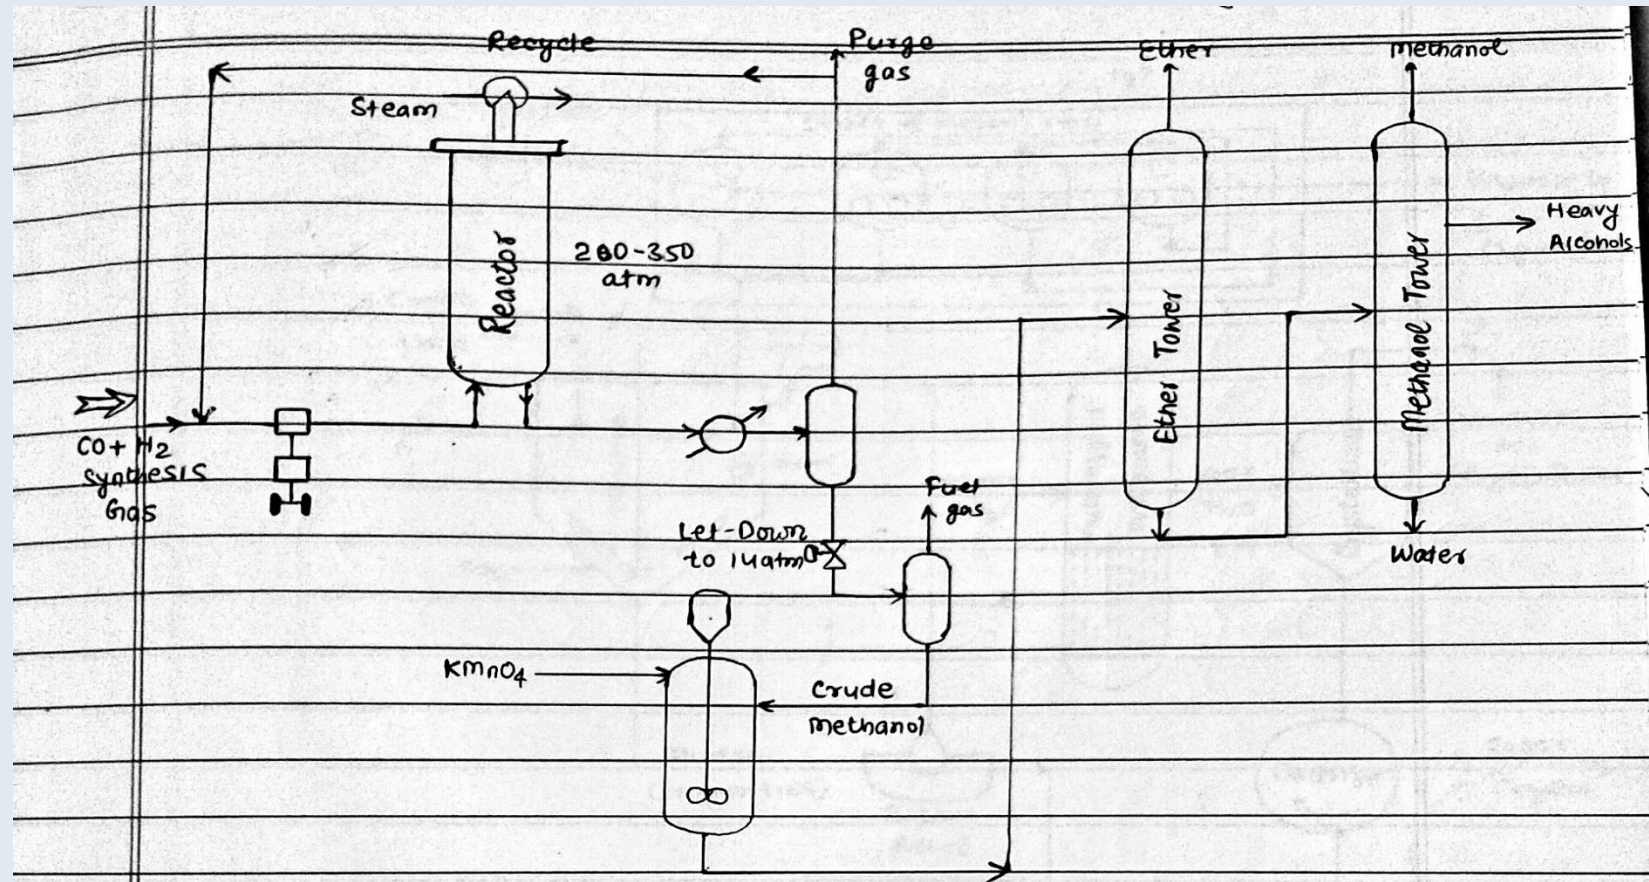 Recycle
Purge
gas
Ether
Methanol
Steam
Reactor
200-350
atm
Heavy
Alcohols
Ether Tower
Methanol Tower
CO + H2
Synthesis
Gas
Fuel
gas
Let-Down
to 14atm
Water
KMnO4
Crude
Methanol